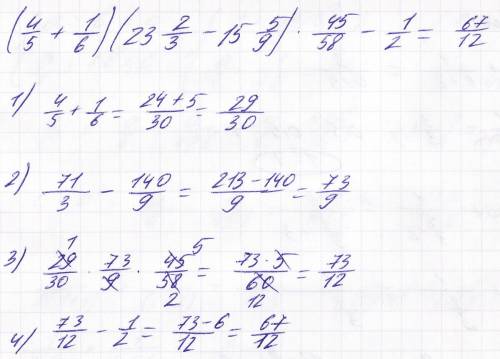 (4/5 + 1/6)(23 2/3 - 15 5/9) · 45/58 - 1/2 = 67/12
1) 4/5 + 1/6 = 24+5/30 = 29/30
2) 71/3 - 140/9 = 213-140/9 = 73/9
3) 29/30 1 · 73/9 · 45/58 5 2 = 73·5/60 12 = 73/12
4) 73/12 - 1/2 = 73-6/12 = 67/12